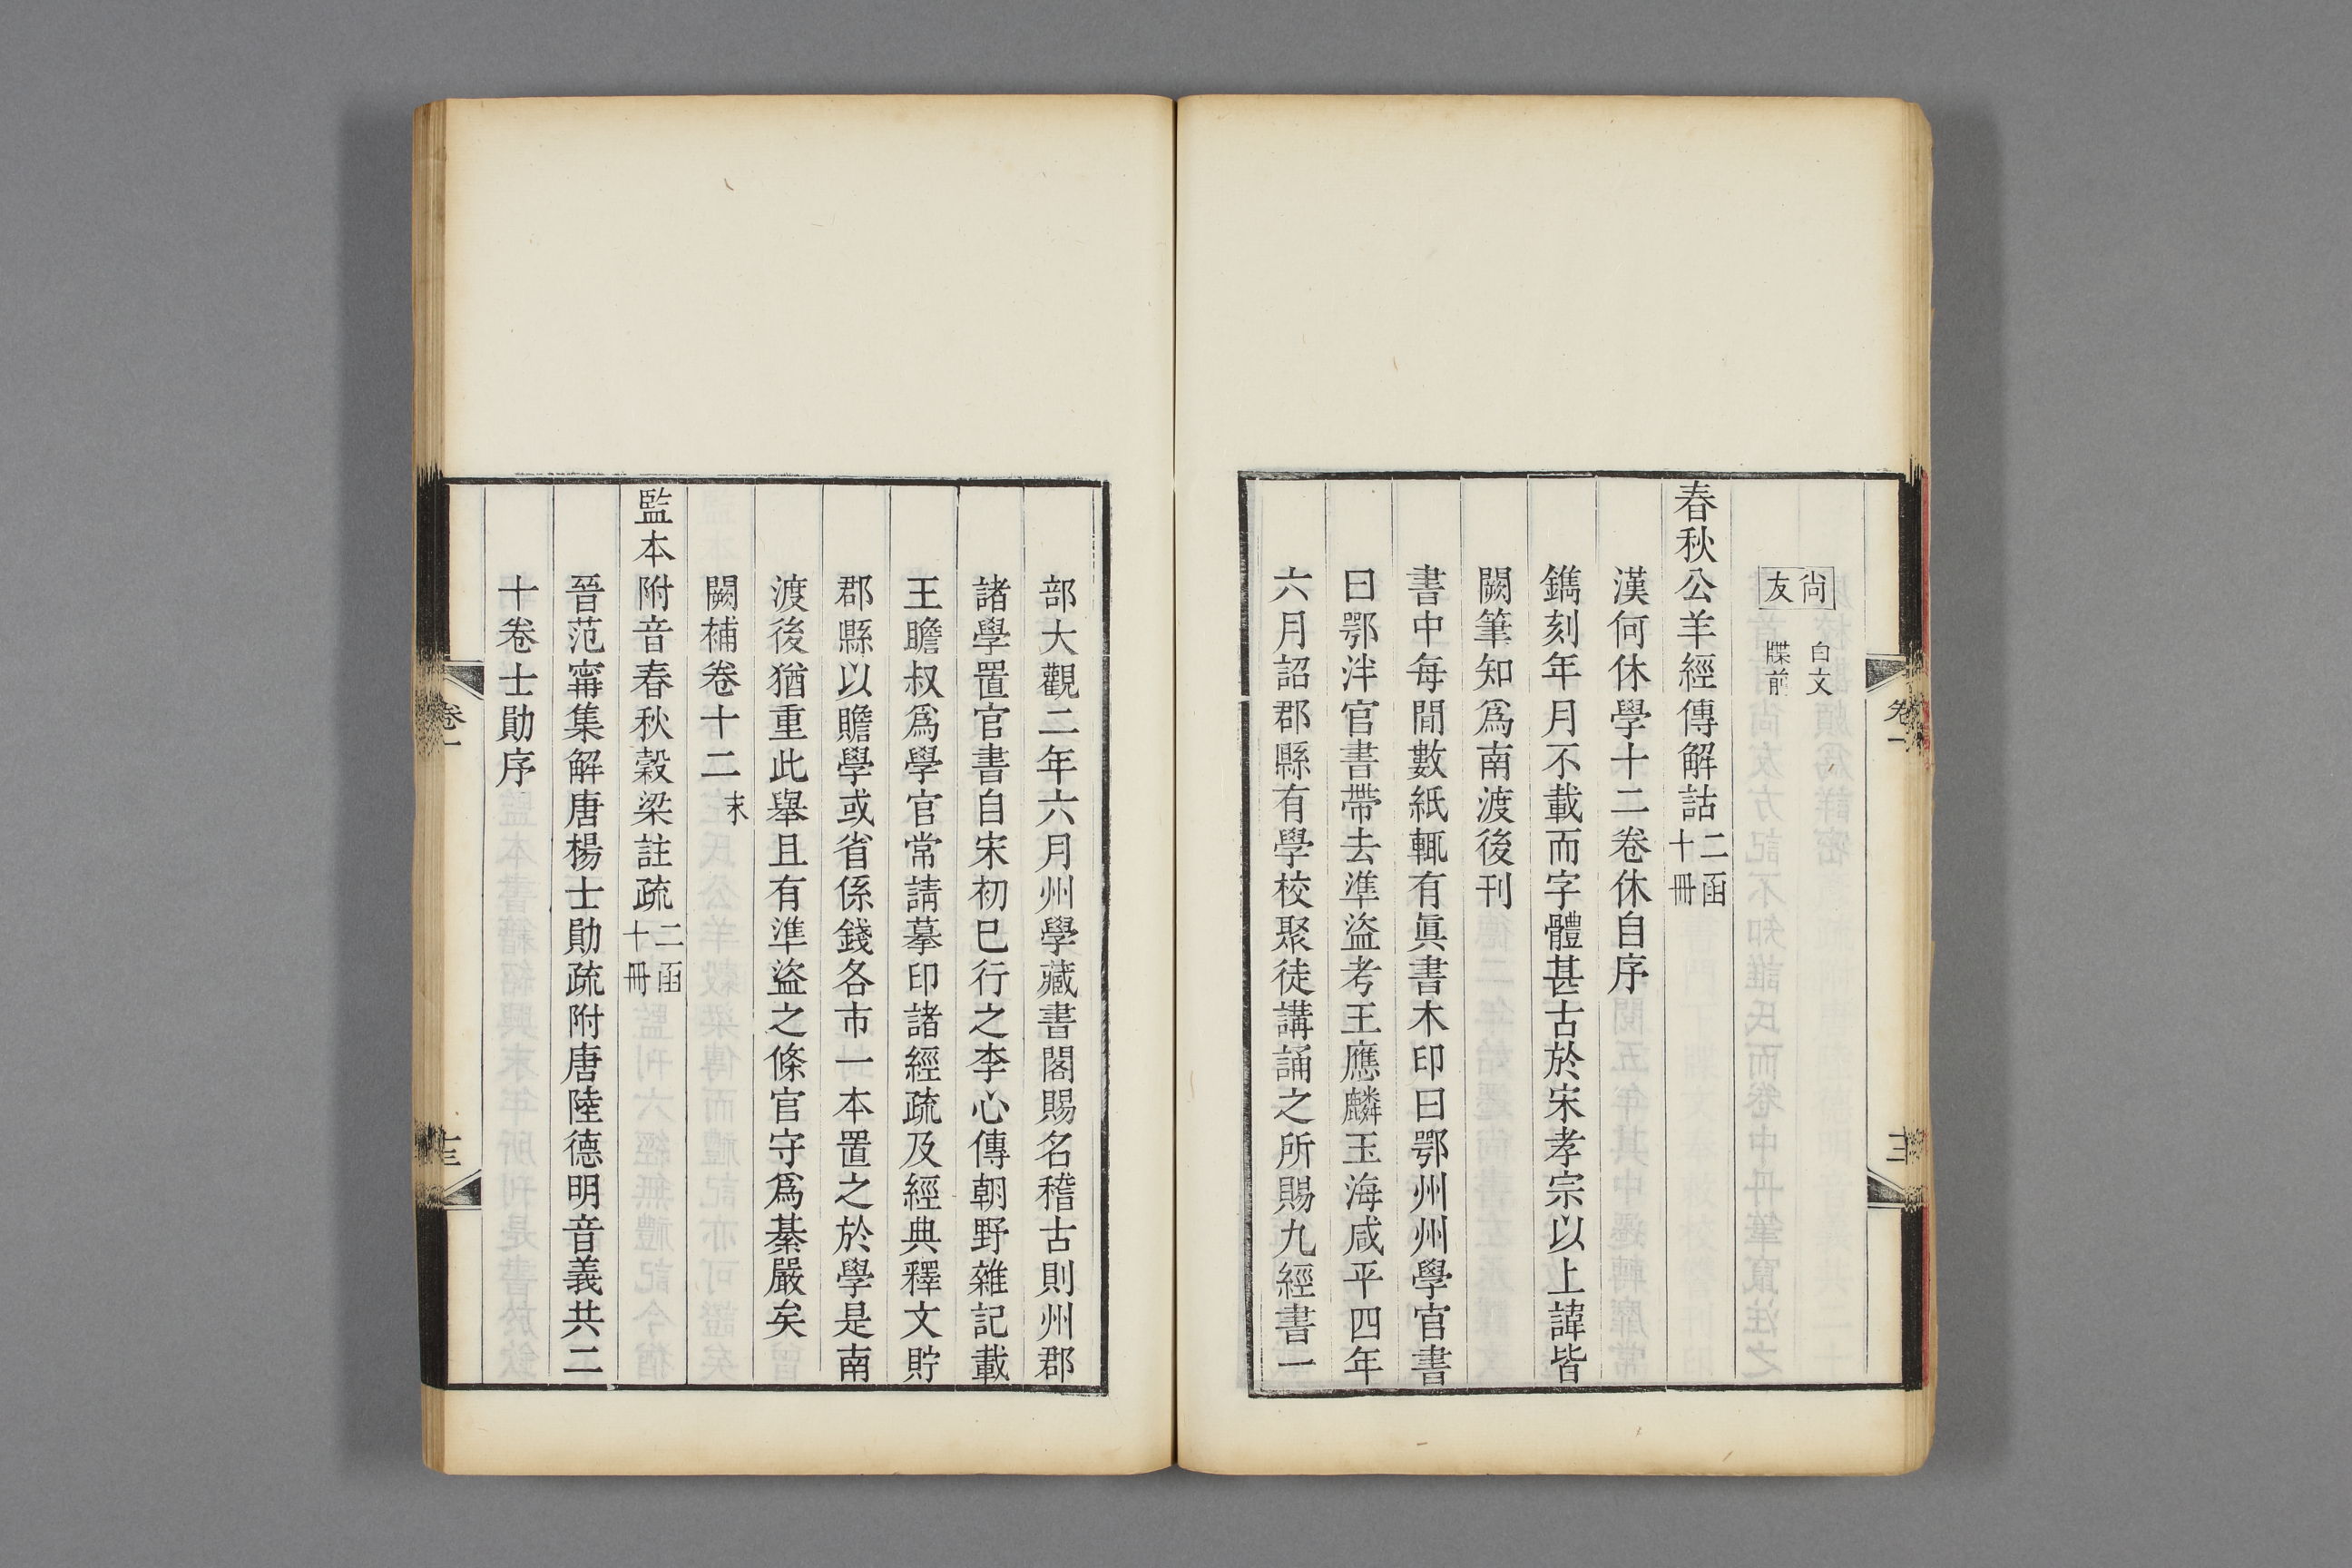 尙友 白文 牒前
春秋公羊經傳解詁 二函十冊
漢何休學十二卷休自序
鐫刻年月不載而字體甚古於宋孝宗以上諱皆
闕筆知爲南渡後刊
書中每閒數紙輒有眞書木印曰鄂州州學官書
曰鄂泮官書帶去準盜考王應麟玉海咸平四年
六月詔郡縣有學校聚徒講誦之所賜九經書一
部大觀二年六月州學藏書閣賜名稽古則州郡
諸學置官書自宋初已行之李心傳朝野雜記載
王瞻叔爲學官常請摹印諸經疏及經典釋文貯
郡縣以贍學或省係錢各市一本置之於學是南
渡後猶重此舉且有準盜之條官守爲綦嚴矣
闕補卷十二 末
監本附音春秋穀梁註疏 二函十冊
晉范甯集解唐楊士勛疏附唐陸德明音義共二
十卷士勛序
卷一
十三